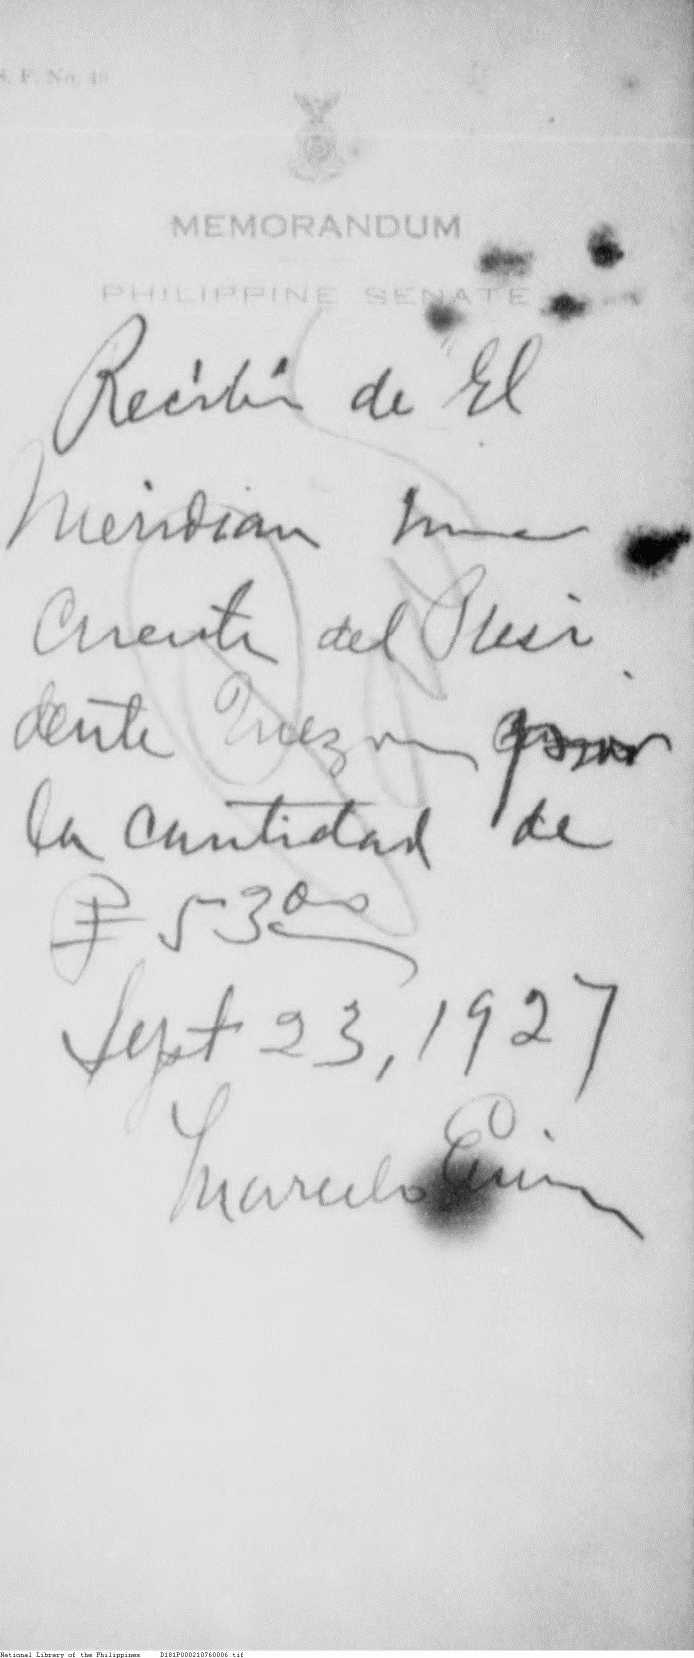 S. F. No. 48
MEMORANDUM
PHILIPPINE SENATE
Recibí de El
Meridian una
cuenta del Presi
dente Quezon por
la cantidad de
₱ 53.00
Sept 23, 1927
Marcelo
National Library of the Philippines D181P000210760006.tif